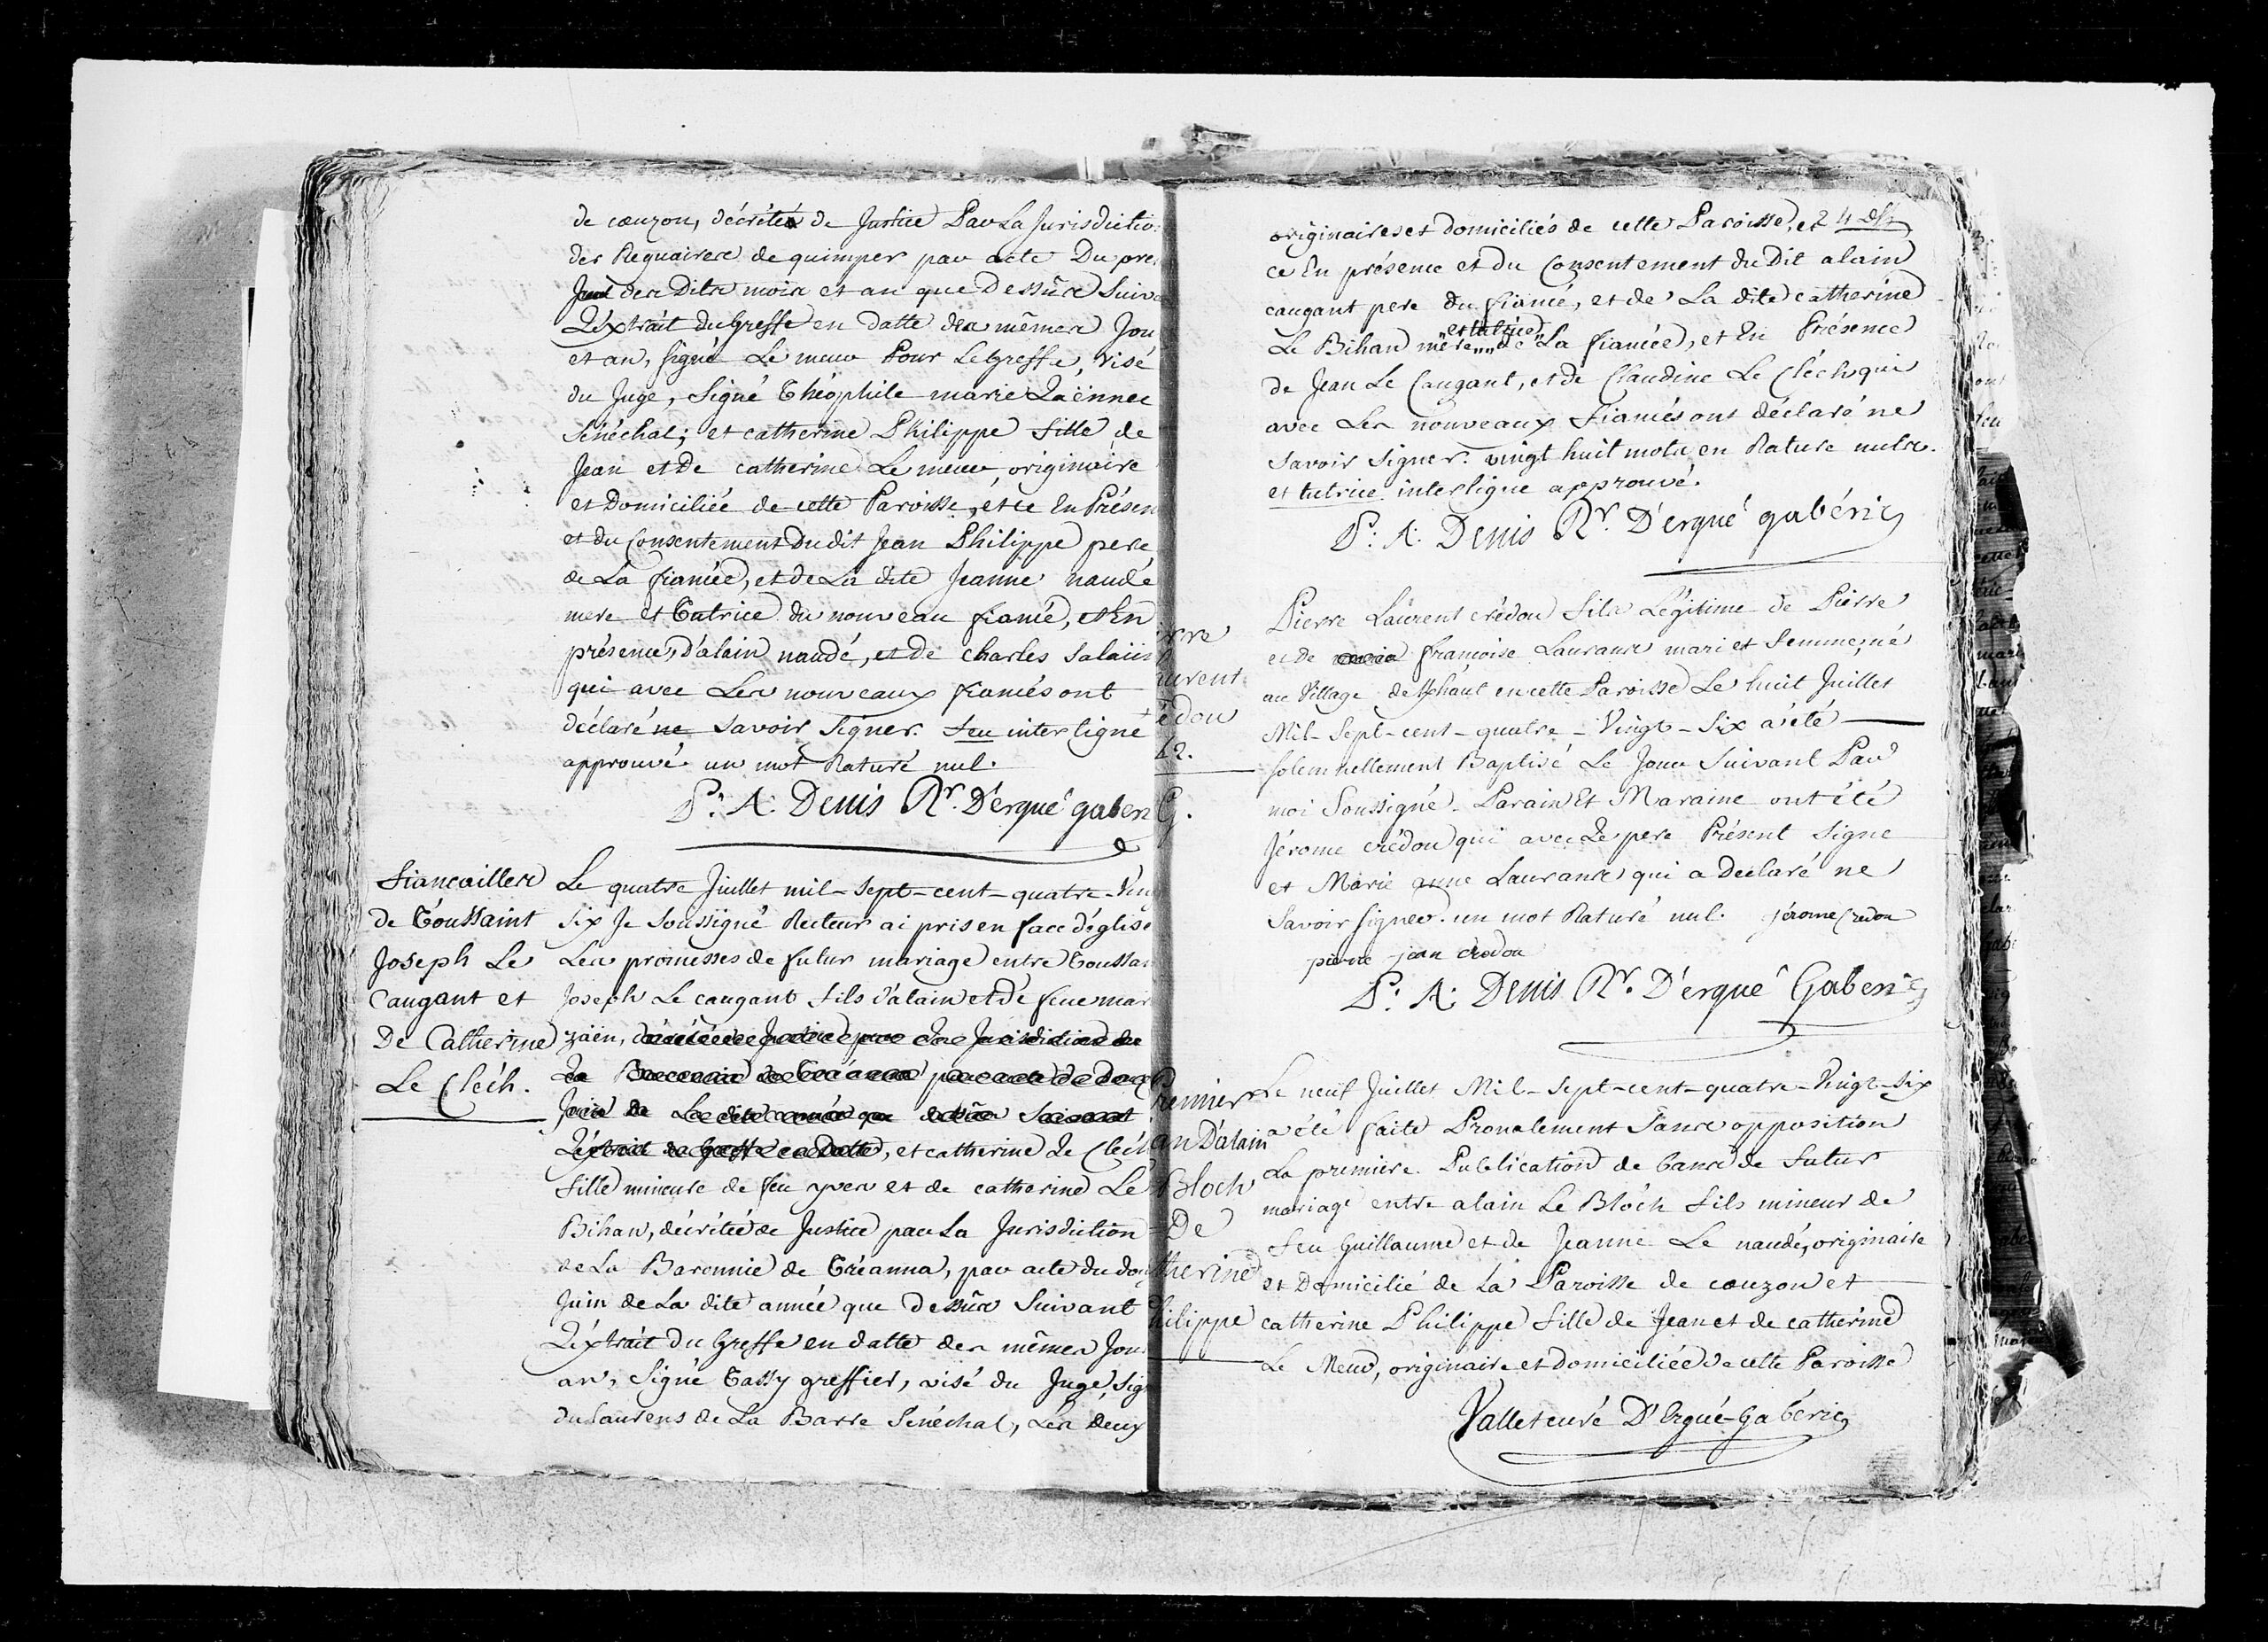 de cœuzon, décrété de Justice Par La Jurisdictio
des Reguaires de quimper par acte Du pre
des Dits mois et an que Dessûs Suiv
L'éxtrait du Greffe en datte des mêmes Jou
et an, signé Le meur Pour Le Greffe, visé
du Juge, Signé Théophile marie Laënnec
Sénéchal; et catherine Philippe fille de
Jean et De catherine Le meur, originaire
et Domiciliée de cette Paroisse, et ce En Présen
et du Consentement Dudit Jean Philippe pere
de La fiancée, et de La dite Jeanne naudé
mere et Tutrice du nouveau fiancé, et En
présence d'alain naudé, et De charles Salaün
qui avec Les nouveaux fiancés ont
déclaré ne savoir signer. feu interligne
approuvé. un mot Raturé nul.
P. A. Denis Rr. D'ergué gaberi
Fiancailles
de Toussaint
Joseph Le
Caugant et
De Catherine
Le Cléch.
Le quatre Juillet mil-sept-cent-quatre-Vin
six Je soussigné Recteur ai pris en face d'églis
Les promesses de futur mariage entre Toussa
Joseph Le caugant fils d'alain et de feue mar
zäen, décrété de Justice par La Jurisdiction de
La Baronnie de Tréanna par acte du douz
Juin de La dite année que dessûs Suivant
L'éxtrait du Greffe en Datte, et catherine Le Cléch
fille mineure de feu yves et de catherine Le
Bihan, décrétée de Justice par La Jurisdiction
de La Baronnie de Tréanna, par acte du dou
Juin de La dite année que Dessûs Suivant
L'éxtrait Du Greffe en datte des mêmes Jou
an, Signé Tassy greffier, visé du Juge, Sig
du Laurens de La Barre Sénéchal, Les deux
originaires et domiciliés de cette Paroisse, et
ce En présence et du Consentement du Dit alain
caugant pere du fiancé, et de La dite catherine
et tutrice
Le Bihan mere de La fiancée, et En Présence
de Jean Le Caugant, et de Claudine Le Cléch qui
avec Les nouveaux fiancés ont déclaré ne
savoir signer. vingt huit mots en Rature nuls.
et tutrice interligne approuvé.
P. A. Denis Rr. D'ergué gabéric
urent
édou
Pierre Laurent crédou fils Légitime de Pierre
et de françoise Laurans mari et femme, né
au Village de en cette Paroisse Le huit Juillet
Mil-Sept-cent-quatre-Vingt-Six a été
solemnellement Baptisé Le Jour Suivant Par
moi Soussigné. Parain Et Maraine ont été
Jérome crédou qui avec Le pere Présent signe
et Marie anne Laurans qui a déclaré ne
Savoir signer. un mot Raturé nul. jérome Credou
pierre jean crédou
P. A. Denis Rr. D'ergué Gaberic
Premier
an D'alain
Bloch
De
therine
hilippe
Le neuf Juillet Mil-Sept-cent-quatre-Vingt-Six
a été faite Pronalement Sans opposition
La premiere Publication de bans de futur
mariage entre alain Le Bloch fils mineur de
feu Guillaume et de Jeanne Le naudé, originaire
et Domicilié de La Paroisse de cœuzon et
catherine Philippe fille de Jean et de catherine
Le Meur, originaire et Domiciliée de cette Paroisse
Vallet curé D'Ergué-Gabéric